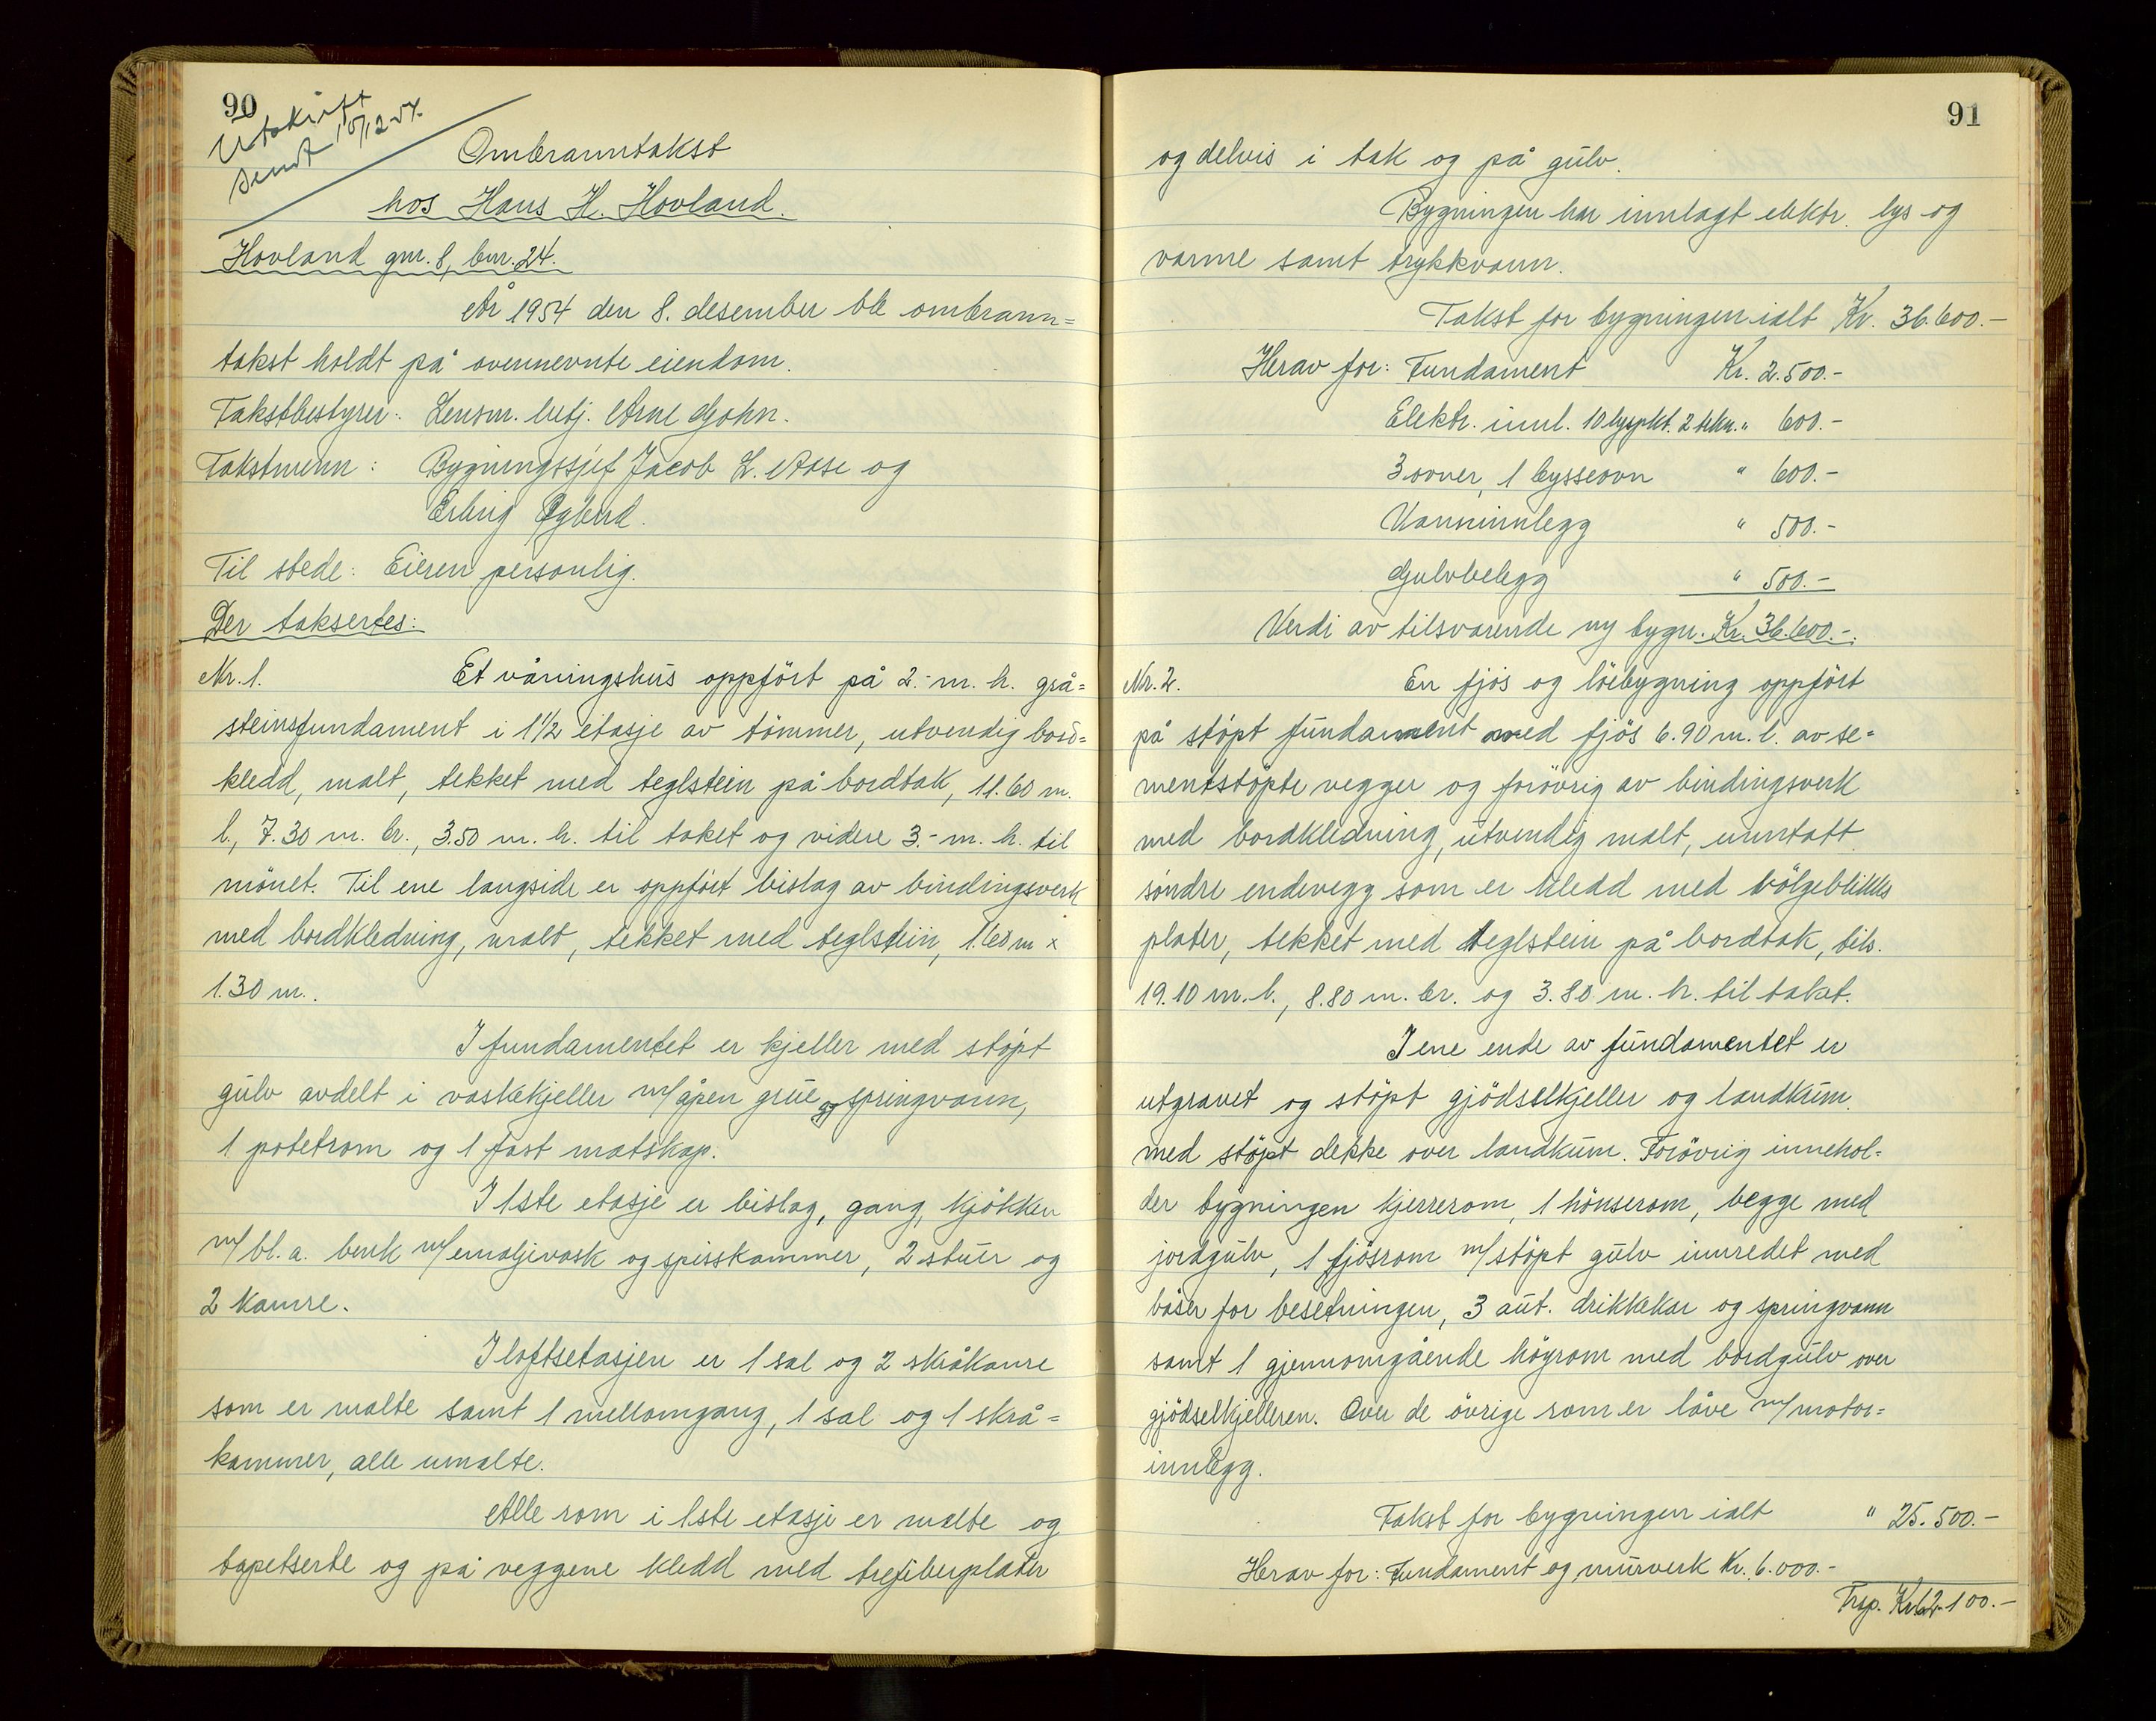 90
Utskrift
sendt 10/12 54.
Ombranntakst
hos Hans H. Hovland.
Hovland gnr. 8, bnr. 24.
År 1954 den 8. desember ble ombrann=
takst holdt på ovennevnte eiendom.
Takstbestyrer: Lensm. betj. Arne Gjohn.
Takstmenn: Bygningssjef Jacob L. Aase og
Erling
Til stede: Eieren personlig.
Der taksertes:
Nr. 1. Et våningshus oppfört på 2.- m. h. grå=
steinsfundament i 1 1/2 etasje av tömmer, utvendig bord=
kledd, malt, tekket med teglstein på bordtak, 11.60 m.
l., 7.30 m. br., 3.50 m. h. til taket og videre 3.- m. h. til
mönet. Til ene langside er oppfört bislag av bindingsverk
med bordkledning, malt, tekket med teglstein, 1.60 m x
1.30 m..
I fundamentet er kjeller med stöpt
gulv avdelt i vaskekjeller m/åpen grue og springvann,
1 potetrom og 1 fast matskap.
I 1ste etasje er bislag, gang, kjökken
m/ bl. a. benk m/emaljevask og spisskammer, 2 stuer og
2 kamre.
I loftsetasjen er 1 sal og 2 skråkamre
som er malte samt 1 mellomgang, 1 sal og 1 skrå=
kammer, alle umalte.
Alle rom i 1ste etasje er malte og
tapetserte og på veggene kledd med trefiberplater
91
og delvis i tak og på gulv.
Bygningen har innlagt elektr. lys og
varme samt trykkvann.
Takst for bygningen ialt Kr. 36.600.-
Herav for: Fundament Kr. 2.500.-
Elektr. innl. 10 lyspkt. 2 stkn. " 600.-
3 ovner, 1 bysseovn " 600.-
Vanninnlegg " 500.-
Gulvbelegg " 500.-
Verdi av tilsvarende ny bygn. Kr. 36.600.-.
Nr. 2. En fjös og löebygning oppfört
på stöpt fundament med fjös 6.90 m. l. av se=
mentstöpte vegger og forövrig av bindingsverk
med bordkledning, utvendig malt, unntatt
söndre endevegg som er kledd med bölgeblikks
plater, tekket med teglstein på bordtak, tils.
19.10 m. l., 8.80 m. br. og 3.80 m. h. til taket.
I ene ende av fundamentet er
utgravet og stöpt gjödselkjeller og landkum.
med stöpt dekke over landkum. Forövrig innehol=
der bygningen kjerrerom, 1 hönserom, begge med
jordgulv, 1 fjösrom m/stöpt gulv innredet med
båser for besetningen, 3 aut. drikkekar og springvann
samt 1 gjennomgående höyrom med bordgulv over
gjödselkjelleren. Over de övrige rom er låve m/motor=
innlegg.
Takst for bygningen ialt " 25.500.-
Herav for: Fundament og murverk Kr. 6.000.-
Trsp. Kr. 62.100.-